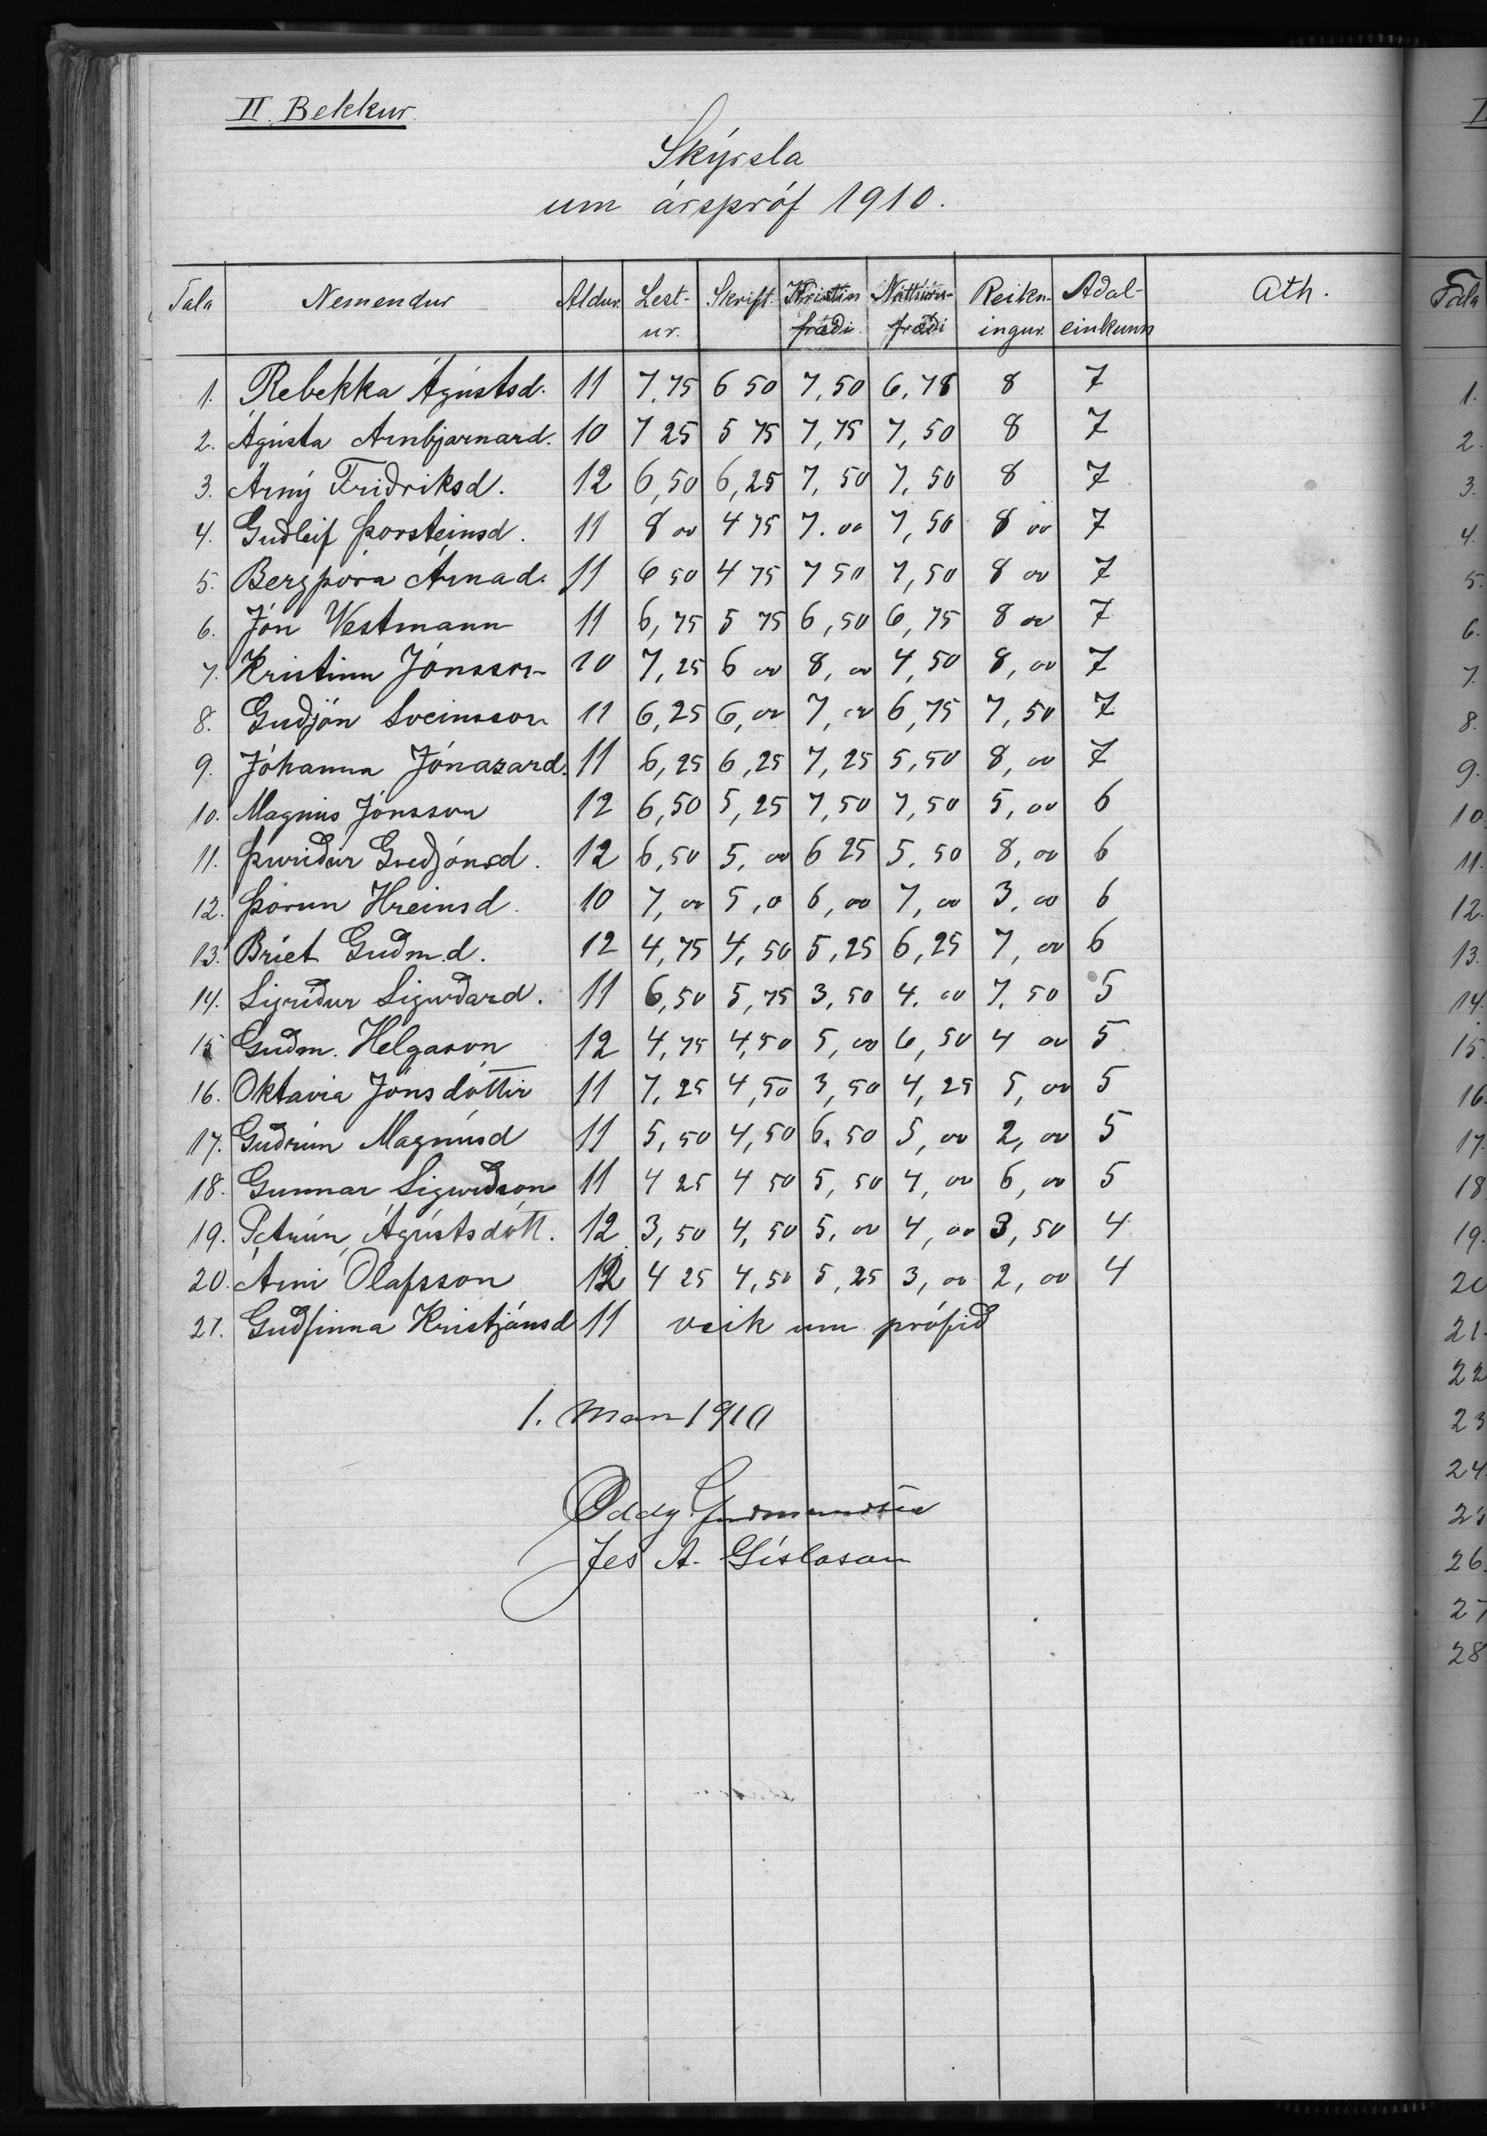 II. Bekkur.
Skýrsla
um árspróf 1910.
Tala Nemendur Aldur. Lest- Skrift. Kristin Náttúru- Reikn- Aðal- Ath.
ur. fræði. fræði ingur. einkunn
1. Rebekka Ágústsd. 11 7,75 6 50 7,50 6,75 8 7
2. Ágústa Arnbjarnard. 10 7 25 5 75 7,75 7,50 8 7
3. Árný Friðriksd. 12 6,50 6,25 7,50 7,50 8 7
4. Guðleif Þorsteinsd. 11 8 00 4 75 7.00 7,50 8 00 7
5. Bergþóra Árnad. 11 6 50 4 75 7 50 7,50 8 00 7
6. Jón Vestmann 11 6,75 5 75 6,50 6,75 8 00 7
7. Kristinn Jónsson 10 7,25 6 00 8,00 4,50 8,00 7
8. Guðjón Sveinsson 11 6,25 6,00 7,00 6,75 7,50 7
9. Jóhanna Jónasard. 11 6,25 6,25 7,25 5,50 8,00 7
10. Magnús Jónsson 12 6,50 5,25 7,50 7,50 5,00 6
11. Þuríður Guðjónsd. 12 6,50 5,00 6 25 5,50 8,00 6
12. Þórun Hreinsd. 10 7,00 5,0 6,00 7,00 3,00 6
13. Bríet Guðm.d. 12 4,75 4,50 5,25 6,25 7,00 6
14. Sigríður Sigurðard. 11 6,50 5,75 3,50 4.00 7,50 5
15 Guðm. Helgason 12 4,75 4,50 5,00 6,50 4 00 5
16. Oktavía Jónsdóttir 11 7,25 4,50 3,50 4,25 5,00 5
17. Guðrún Magnúsd 11 5,50 4,50 6.50 5,00 2,00 5
18. Gunnar Sigurðson 11 4 25 4 50 5,50 4,00 6,00 5
19. Petrún Ágústsdótt. 12 3,50 4,50 5.00 4,00 3,50 4
20. Árni Ólafsson 12 4 25 4,50 5,25 3,00 2,00 4
21. Guðfinna Kristjánsd 11 veik um prófið
1. 1910
Oddg. Guðmundsen
Jes A. Gíslason
Tala
1.
2.
3.
4.
5.
6.
7.
8.
9.
10.
11.
12.
13.
14.
15.
16.
17.
18
19.
20
21.
22
23
24.
25
26.
27
28